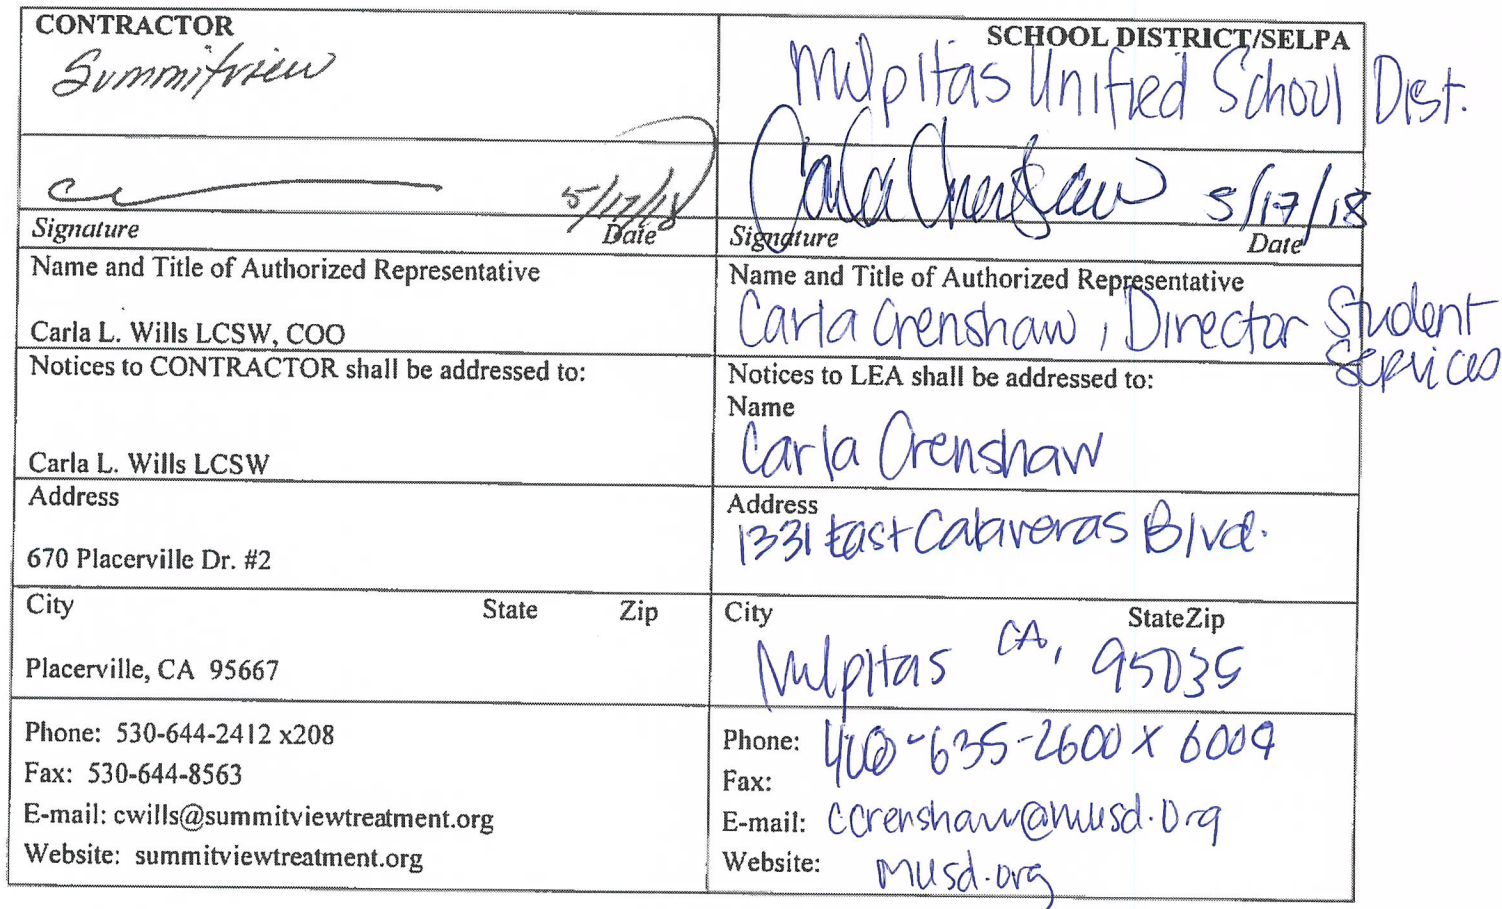 CONTRACTOR
Summitview
5/17/18
Signature Date
Name and Title of Authorized Representative
Carla L. Wills LCSW, COO
Notices to CONTRACTOR shall be addressed to:
Carla L. Wills LCSW
Address
670 Placerville Dr. #2
City State Zip
Placerville, CA 95667
Phone: 530-644-2412 x208
Fax: 530-644-8563
E-mail: cwills@summitviewtreatment.org
Website: summitviewtreatment.org
SCHOOL DISTRICT/SELPA
Milpitas Unified School Dist.
Carla Crenshaw 5/17/18
Signature Date
Name and Title of Authorized Representative
Carla Crenshaw, Director Student
Services
Notices to LEA shall be addressed to:
Name
Carla Crenshaw
Address
1331 East Calaveras Blvd.
City StateZip
Milpitas CA, 95035
Phone: 408-635-2600 X 6009
Fax:
E-mail: ccrenshaw@musd.org
Website: musd.org